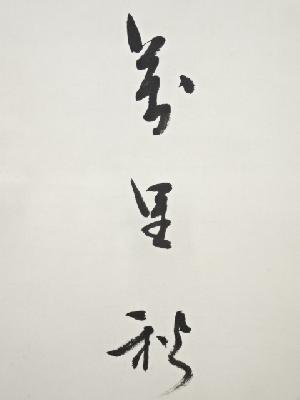 萬里秋